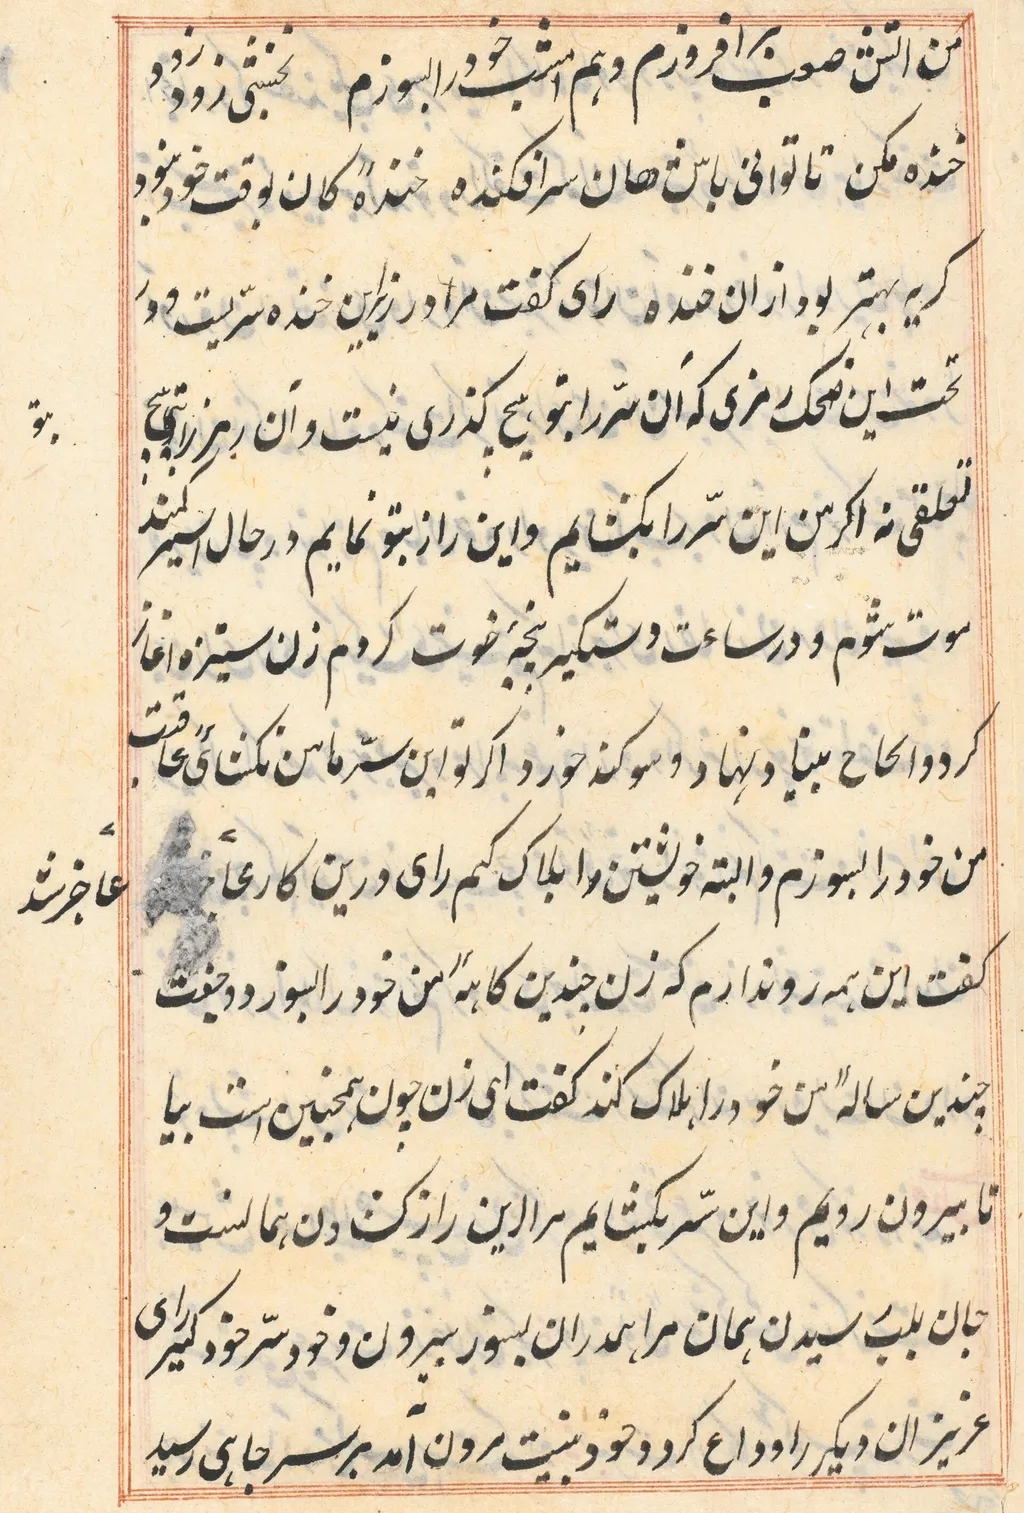 من آتش صعب برافروزم و هم امشب خود را بسوزم نخشبی زود زود
خنده مکن تا توانی باش هان سرافکنده خندهٔ کان بوقت خود نبود
کریه بهتر بود ازان خنده رای کفت مرا در زیر این خنده سریست و در
تحت این ضحک رمزی که آن سّر را بتو هیچ کذری نیست و آن رمز را بتو هیچ
بتو
تعلقی نه اکر من این سّر را بکشایم و این راز بتو نمایم در حال اسیر کمند
موت شوم و در ساعت دستکیر پنجهٔ فوت کردم زن ستیزه اغاز
کرد و الحاح بنیاد نهاد و سوکند خورد اکر تو این سّر با من نکشائی عاقبت
من خود را بسوزم و البته خویشتن را هلاک کنم رای درین کار عاجز
عاجز شد
کفت این همه روندارم که زن چندین کاههٔ من خود را بسوزد و جفت
چندین سالهٔ من خود را هلاک کند کفت ای زن چون همچنین است بیا
تا بیرون رویم و این سّر بکشایم مرا این راز کشادن همانست و
جان بلب رسیدن همان مرا همدران بسوز بیرون و خود سّر خود کیر رای
عزیزان دیکر را وداع کرد و خود بنیت مردن آمد بر سر چاهی رسید